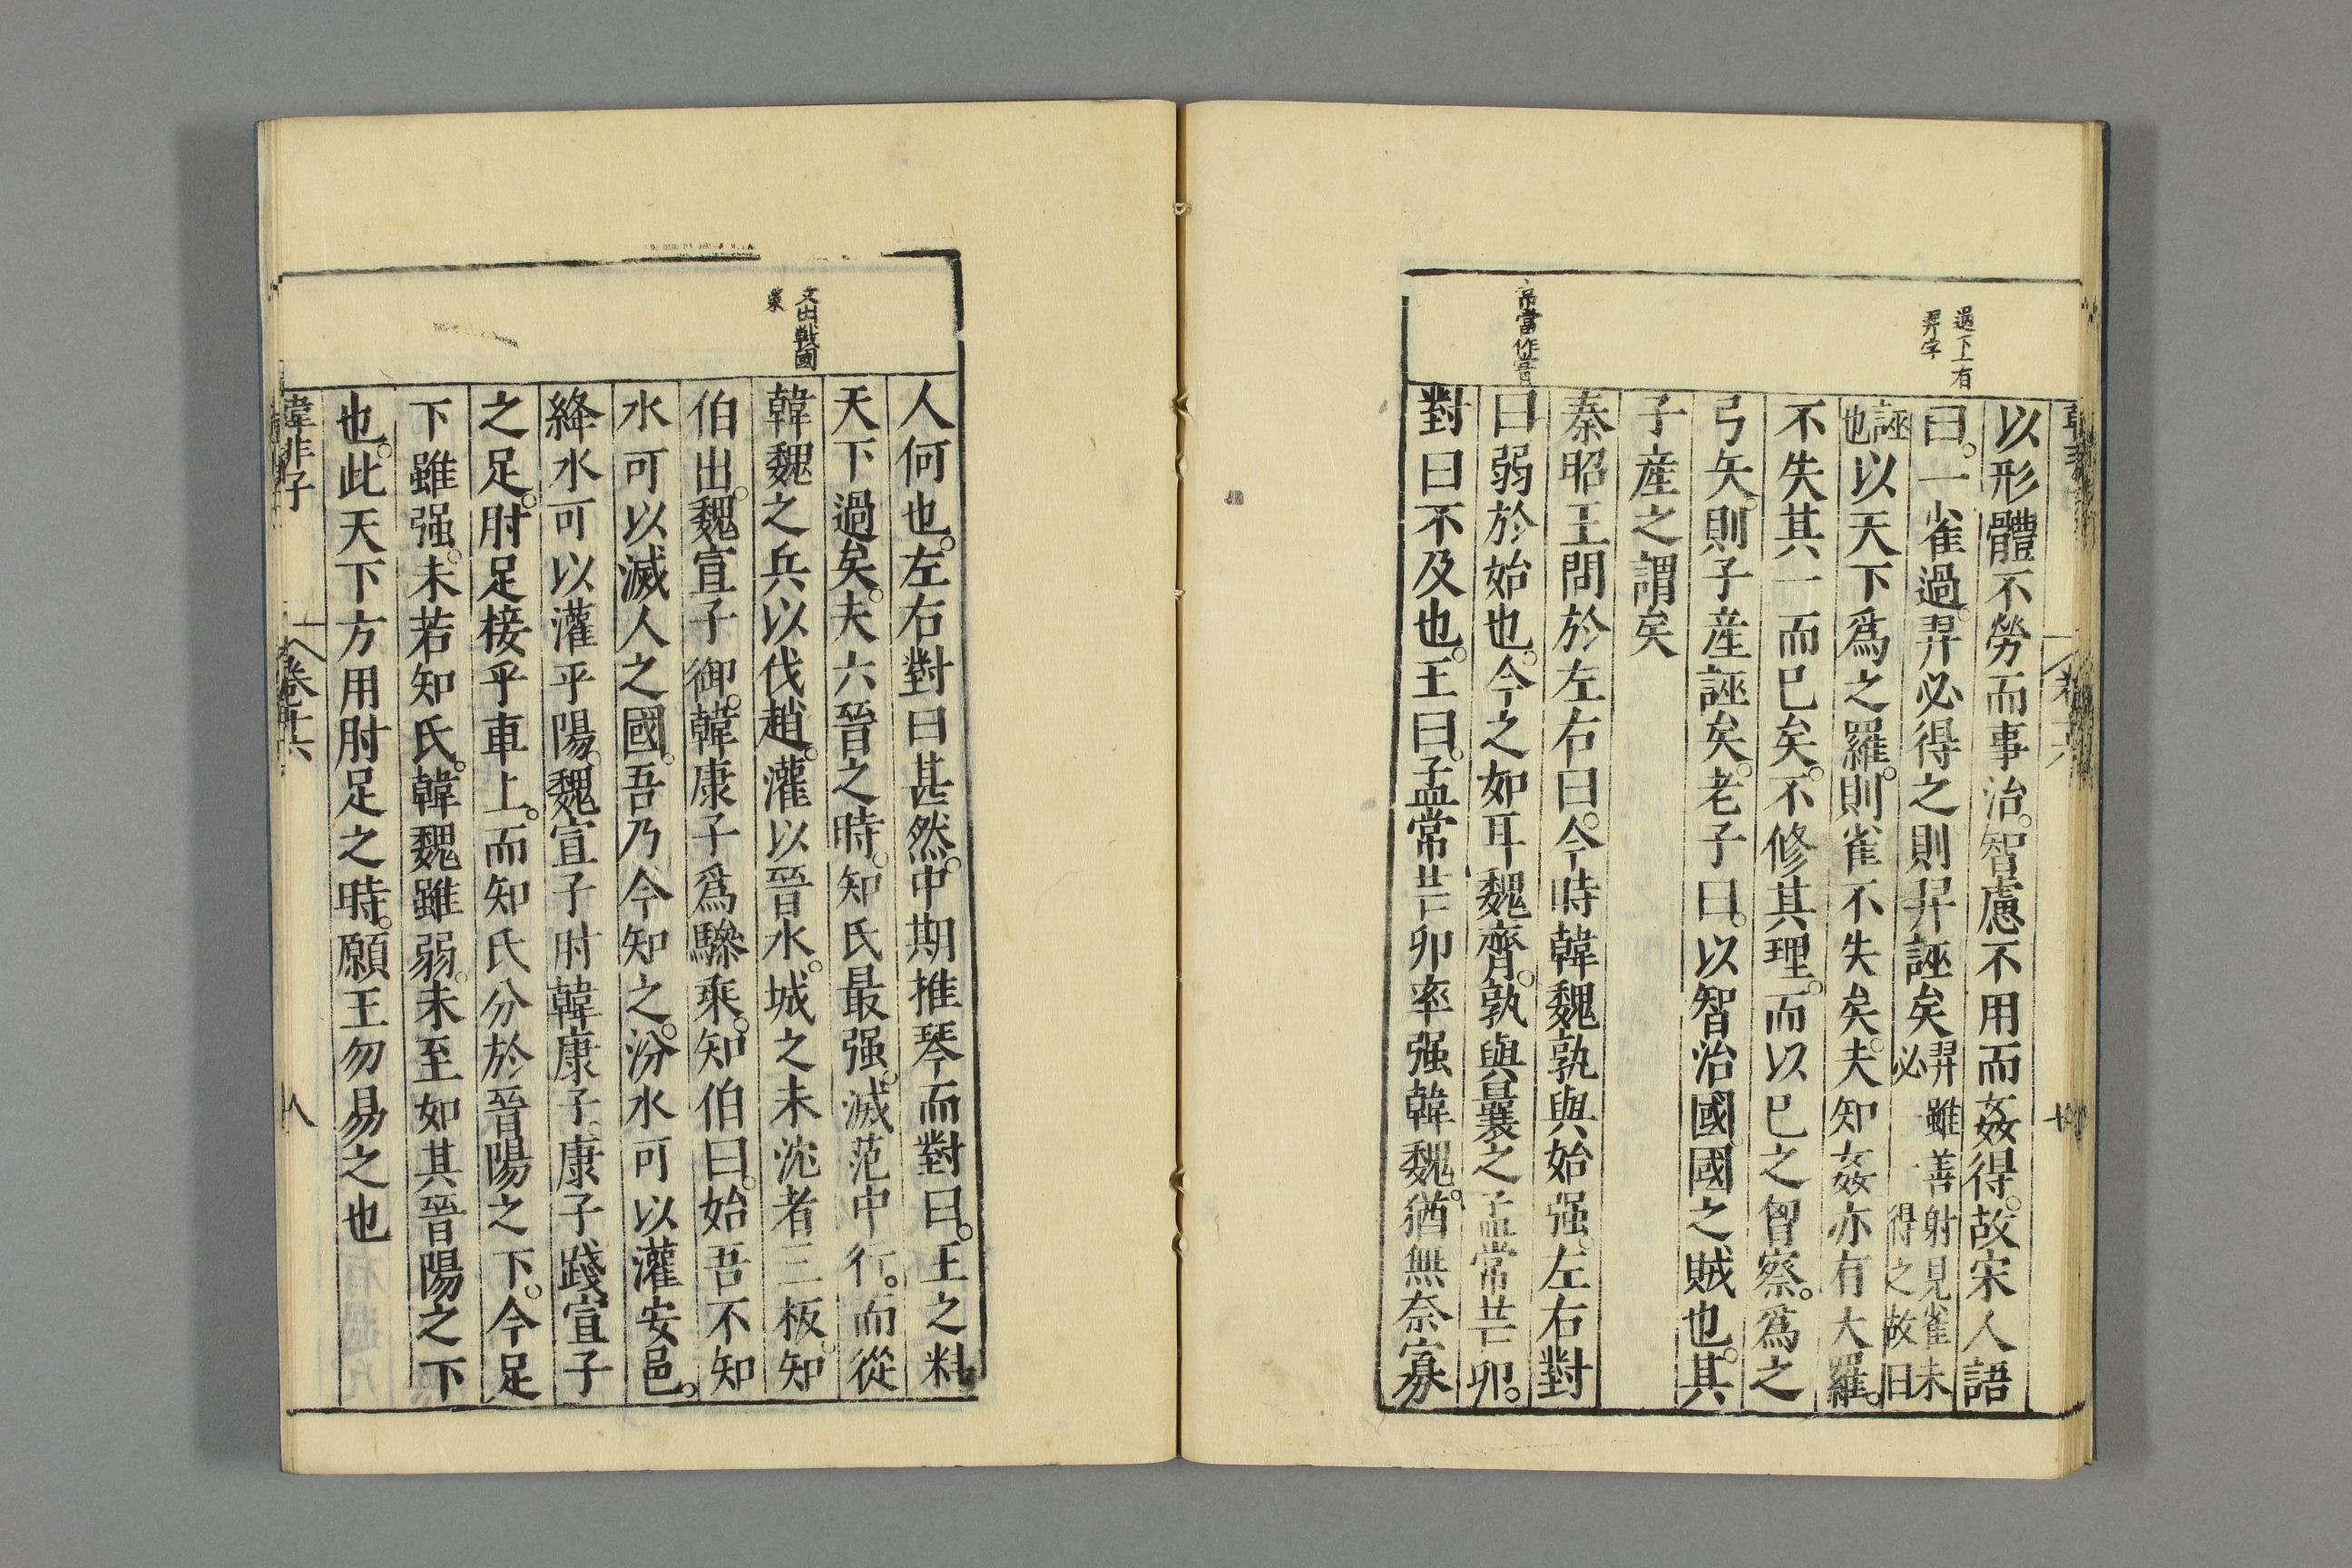 過下上有
羿字
常當作嘗
以形體不勞而事治。智慮不用而姦得。故宋人語
曰。一雀過。羿必得之則羿誣矣羿雖善射見雀未必一一得之故曰
誣也以天下爲之羅。則雀不失矣。夫知姦亦有大羅。
不失其一而已矣。不修其理。而以已之智察。爲之
弓矢。則子産誣矣。老子曰。以智治國。國之賊也。其
子産之謂矣
秦昭王問於左右曰。今時韓魏孰與始强。左右對
曰弱於始也。今之如耳魏齊。孰與曩之孟常芒卯。
對曰不及也。王曰。孟常芒卯率强韓魏。猶無奈寡
文出戰國
策
人何也。左右對曰甚然。中期推琴而對曰。王之料
天下過矣。夫六晉之時。知氏最强。滅范中行。而從
韓魏之兵以伐趙。灌以晉水。城之未沈者三板。知
伯出。魏宣子御。韓康子爲驂乘。知伯曰。始吾不知
水可以滅人之國。吾乃今知之。汾水可以灌安邑。
絳水可以灌平陽。魏宣子肘韓康子。康子踐宣子
之足。肘足接乎車上。而知氏分於晉陽之下。今足
下雖强。未若知氏。韓魏雖弱。未至如其晉陽之下
也。此天下方用肘足之時。願王勿易之也
韓非子 卷十六 八